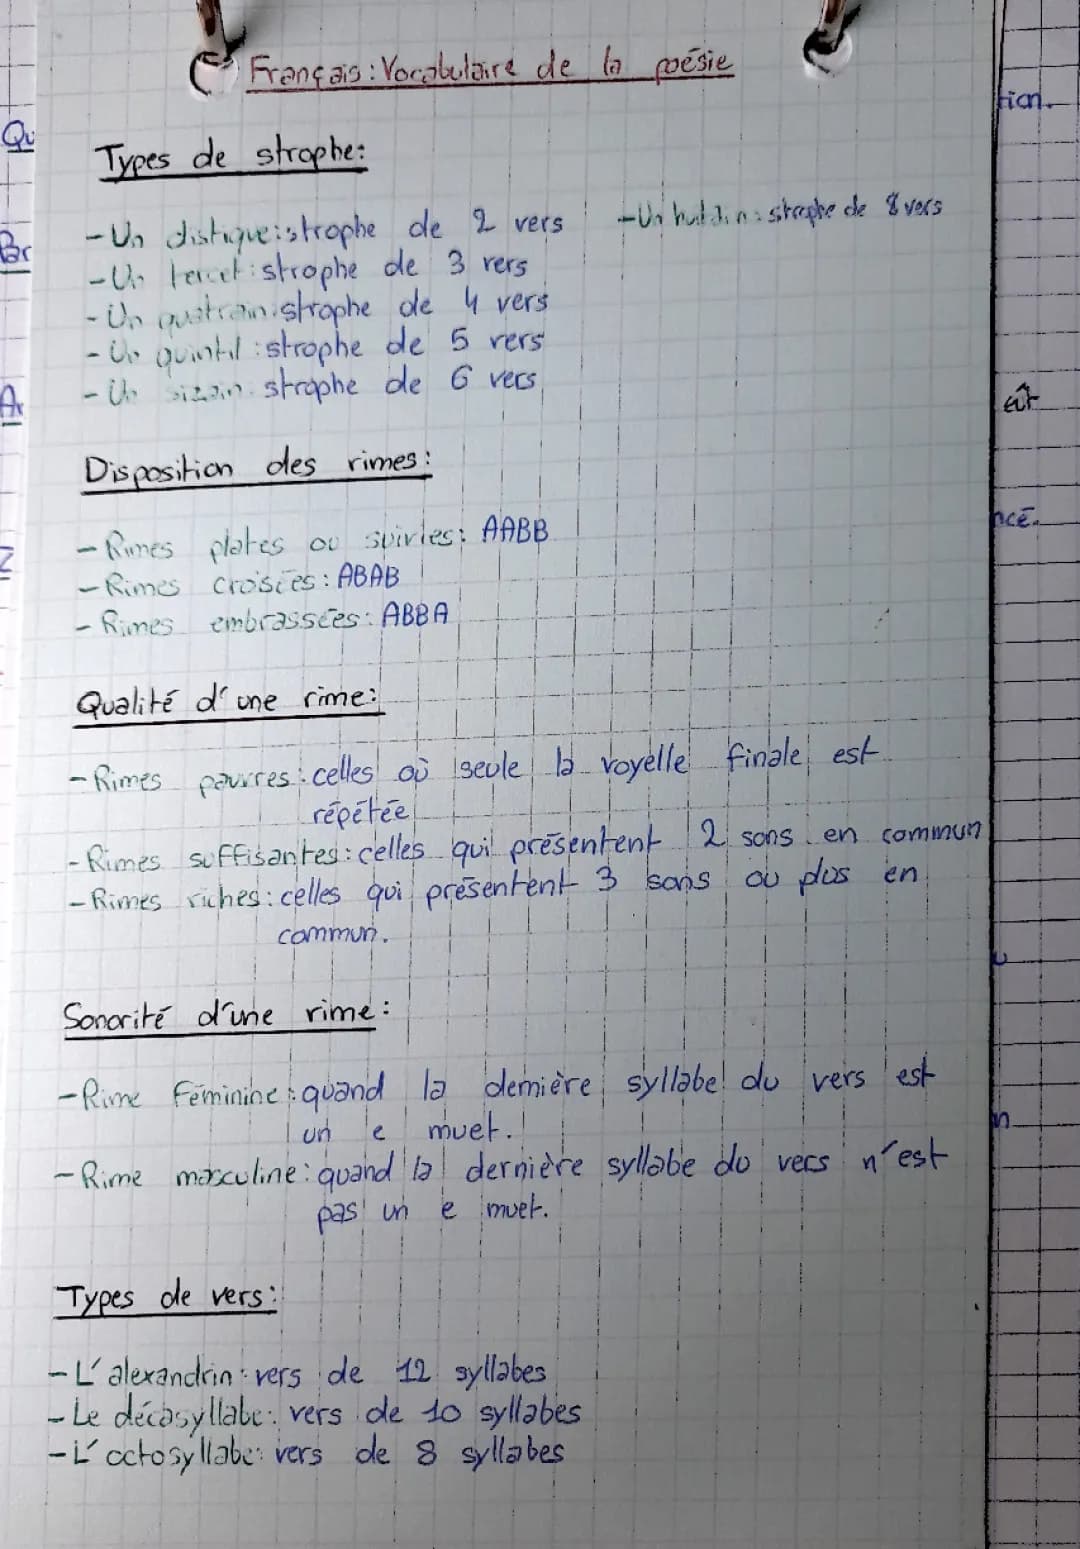 Français : Vocabulaire de la poésie
Types de strophe:
- Un distique : strophe de 2 vers
- Un huitain : strophe de 8 vers
- Un tercet : strophe de 3 vers
- Un quatrain : strophe de 4 vers
- Un quintil : strophe de 5 vers
- Un sizain : strophe de 6 vers
Disposition des rimes :
- Rimes plates ou suivies : AABB
- Rimes croisées : ABAB
- Rimes embrassées : ABBA
Qualité d'une rime :
- Rimes pauvres : celles où seule la voyelle finale est
répétée
- Rimes suffisantes : celles qui présentent 2 sons en commun
- Rimes riches : celles qui présentent 3 sons ou plus en
commun.
Sonorité d'une rime :
- Rime Féminine : quand la dernière syllabe du vers est
un e muet.
- Rime masculine : quand la dernière syllabe du vers n'est
pas un e muet.
Types de vers :
- L'alexandrin : vers de 12 syllabes
- Le décasyllabe : vers de 10 syllabes
- L'octosyllabe : vers de 8 syllabes